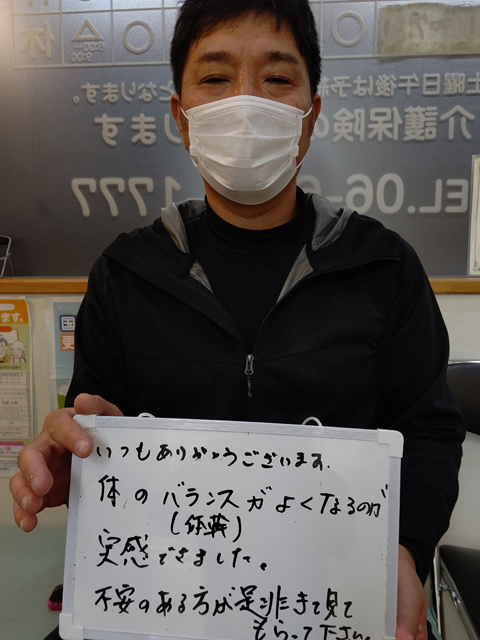 休 △ ○ ○ ○
5:00~
9:00
土曜日午後は予約 となります。
介護保険の ります
TEL.06-6 1777
いつもありがとうございます。
体のバランスがよくなるのが
(体幹)
実感できました。
不安のある方が是非きて見て
もらって下さい